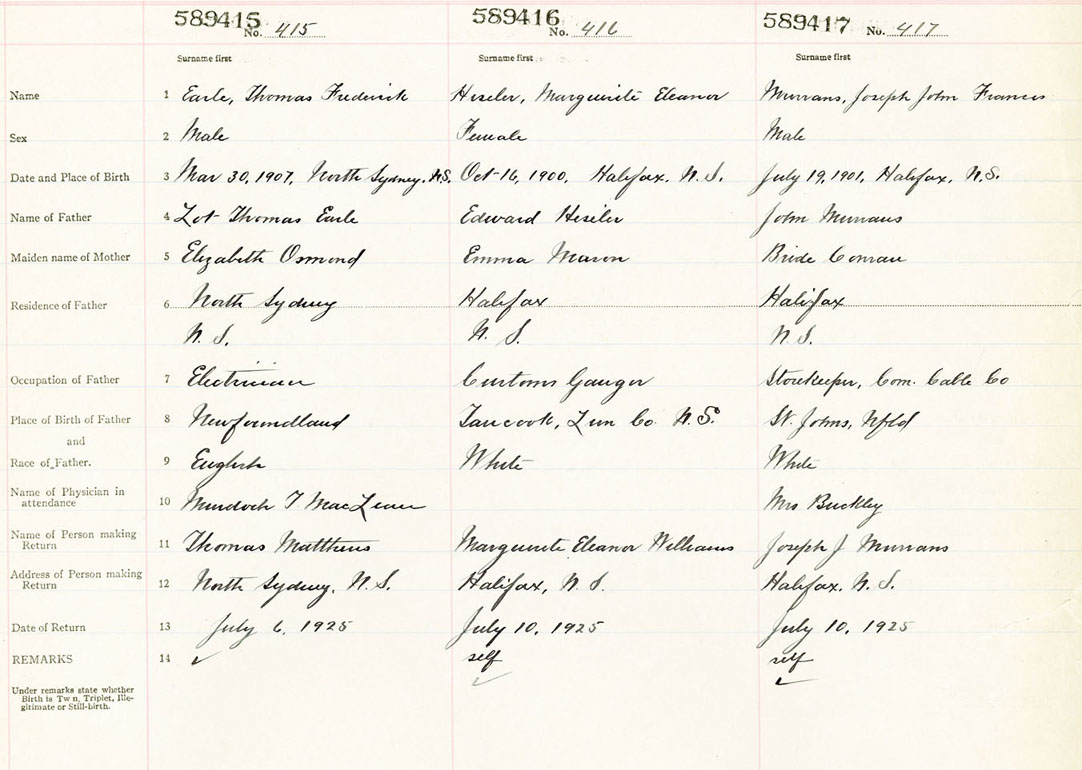 589415 No. 415 589416 No. 416 589417 No. 417
Surname first Surname first Surname first
Name 1 Earle, Thomas Frederick Heseler, Marguerite Eleanor Murrans, Joseph John Francis
Sex 2 Male Female Male
Date and Place of Birth 3 Mar 30, 1907, North Sydney, N.S. Oct-16, 1900, Halifax, N.S. July 19, 1901, Halifax, N.S.
Name of Father 4 Lot Thomas Earle Edward Heseler John Murrans
Maiden name of Mother 5 Elizabeth Osmond Emma Mason Bride Conran
Residence of Father 6 North Sydney Halifax Halifax
N.S. N.S. N.S.
Occupation of Father 7 Electrician Customs Gauger Storekeeper, Com. Cable Co
Place of Birth of Father 8 Newfoundland Tancook, Lun Co. N.S. St. Johns, Nfld
and
Race of Father. 9 English White White
Name of Physician in
attendance 10 Murdock T MacLean Mrs Buckley
Name of Person making
Return 11 Thomas Matthews Marguerite Eleanor Williams Joseph J Murrans
Address of Person making
Return 12 North Sydney, N.S. Halifax, N.S. Halifax, N.S.
Date of Return 13 July 6, 1925 July 10, 1925 July 10, 1925
REMARKS 14 self self
Under remarks state whether
Birth is Twin, Triplet, Ille-
gitimate or Still-birth.